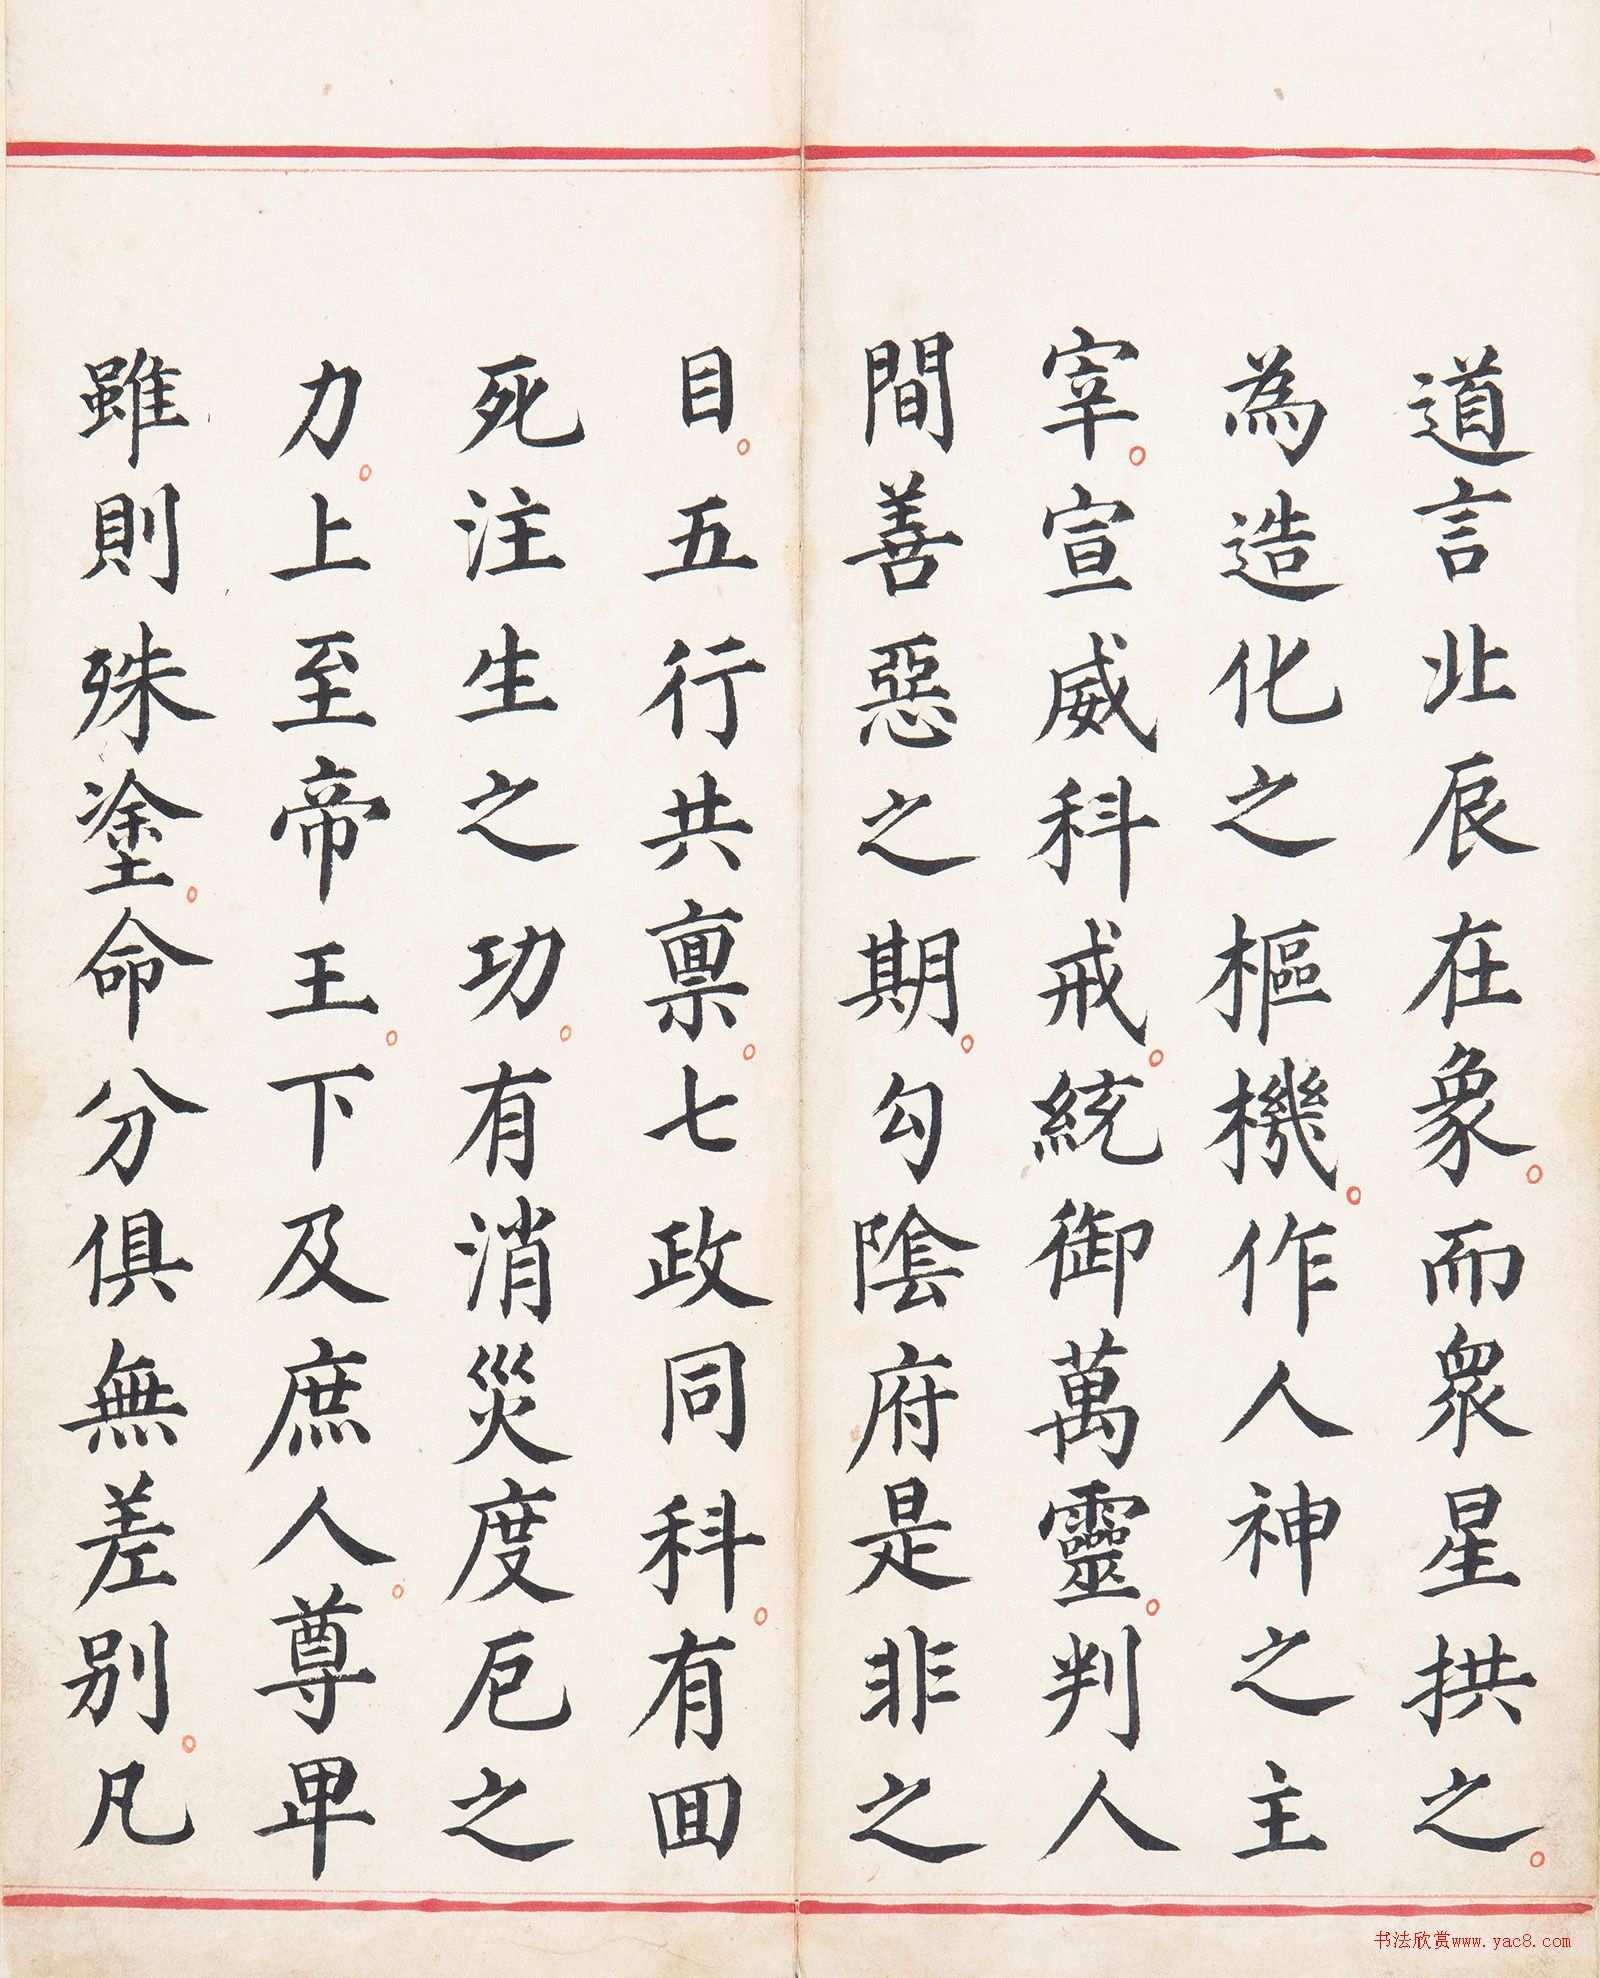 道言北辰在象。而眾星拱之。
為造化之樞機。作人神之主
宰。宣威科戒。統御萬靈。判人
間善惡之期。勾陰府是非之
目。五行共禀。七政同科。有回
死注生之功。有消災度厄之
力。上至帝王。下及庶人。尊卑
雖則殊塗。命分俱無差別。凡
书法欣赏www.yac8.com